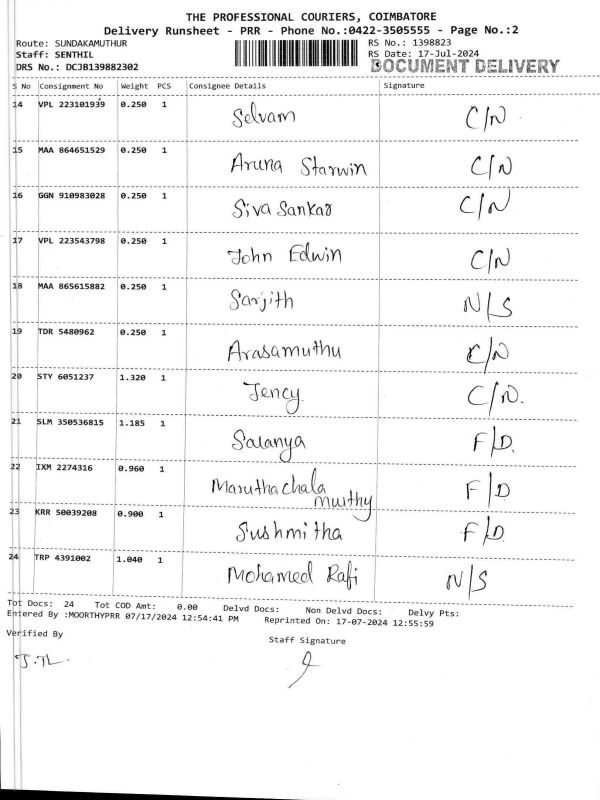 THE PROFESSIONAL COURIERS, COIMBATORE
Delivery Runsheet - PRR - Phone No.:0422-3505555 - Page No.:2
Route: SUNDAKAMUTHUR RS No.: 1398823
Staff: SENTHIL RS Date: 17-Jul-2024
DRS No.: DCJB139882302 DOCUMENT DELIVERY
S No Consignment No Weight PCS Consignee Details Signature
14 VPL 223101939 0.250 1 Selvam C/N
15 MAA 864651529 0.250 1 Aruna Starwin C/N
16 GGN 910983028 0.250 1 Siva Sankar C/N
17 VPL 223543798 0.250 1 John Edwin C/N
18 MAA 865615882 0.250 1 Sarjith N/S
19 TDR 5480962 0.250 1 Arasamuthu C/N
20 STY 6051237 1.320 1 Jency C/N.
21 SLM 350536815 1.185 1 Saranya F/D.
22 IXM 2274316 0.960 1 Maruthachala F/D
murthy
23 KRR 50039208 0.900 1 Sushmitha F/D.
24 TRP 4391002 1.040 1 Mohamed Rafi N/S
Tot Docs: 24 Tot COD Amt: 0.00 Delvd Docs: Non Delvd Docs: Delvy Pts:
Entered By :MOORTHYPRR 07/17/2024 12:54:41 PM Reprinted On: 17-07-2024 12:55:59
Verified By Staff Signature